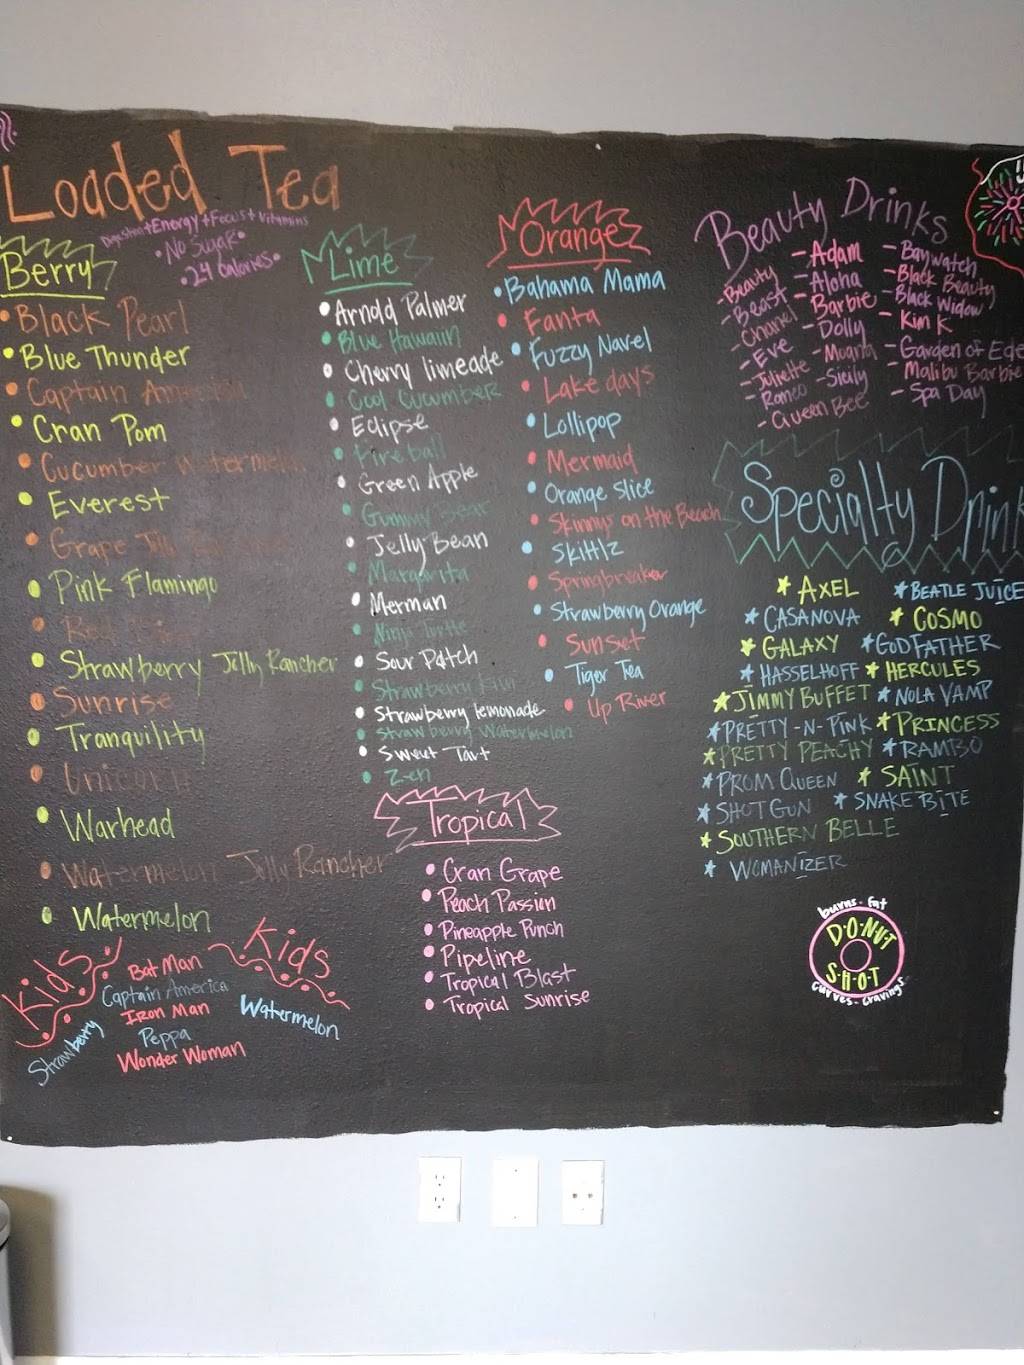 Loaded Tea
Digestion+Energy+Focus+Vitamins
•No Sugar•
•24 Calories•
Berry
• Black Pearl
• Blue Thunder
• Captain America
• Cran Pom
• Cucumber Watermelon
• Everest
• Grape Jolly
• Pink Flamingo
• Strawberry Jolly Rancher
• Sunrise
• Tranquility
• Unicorn
• Warhead
• Watermelon Jolly Rancher
• Watermelon
Lime
• Arnold Palmer
• Blue Hawaiin
• Cherry limeade
• Cool Cucumber
• Eclipse
• Fireball
• Green Apple
• Gummy Bear
• Jelly Bean
• Margarita
• Merman
• Ninja Turtle
• Sour Patch
• Strawberry Kiwi
• Strawberry lemonade
• Strawberry Watermelon
• Sweet Tart
• Z-en
Orange
• Bahama Mama
• Fanta
• Fuzzy Navel
• Lake days
• Lollipop
• Mermaid
• Orange Slice
• Skinnys on the Beach
• Skittlz
• Springbreaker
• Strawberry Orange
• Sunset
• Tiger Tea
• Up River
Tropical
• Cran Grape
• Peach Passion
• Pineapple Punch
• Pipeline
• Tropical Blast
• Tropical Sunrise
Beauty Drinks
- Beauty
- Beast
- Chanel
- Eve
- Juliette
- Romeo
- Queen Bee
- Adam
- Aloha
- Barbie
- Dolly
- Moana
- Sicily
- Baywatch
- Black Beauty
- Black Widow
- Kim K
- Garden of Ede
- Malibu Barbie
- Spa Day
Specialty Drink
★ AXEL ★ BEATLE JUICE
★ CASANOVA ★ COSMO
★ GALAXY ★ GODFATHER
★ HASSELHOFF ★ HERCULES
★ JIMMY BUFFET ★ NOLA VAMP
★ PRETTY-N-PINK ★ PRINCESS
★ PRETTY PEACHY ★ RAMBO
★ PROM QUEEN ★ SAINT
★ SHOTGUN ★ SNAKE BITE
★ SOUTHERN BELLE
★ WOMANIZER
burns-Fat
D·O·N·U·T
S·H·O·T
Curves-Cravings
Kids Kids
Bat Man
Captain America
Iron Man
Peppa
Wonder Woman
Strawberry
Watermelon